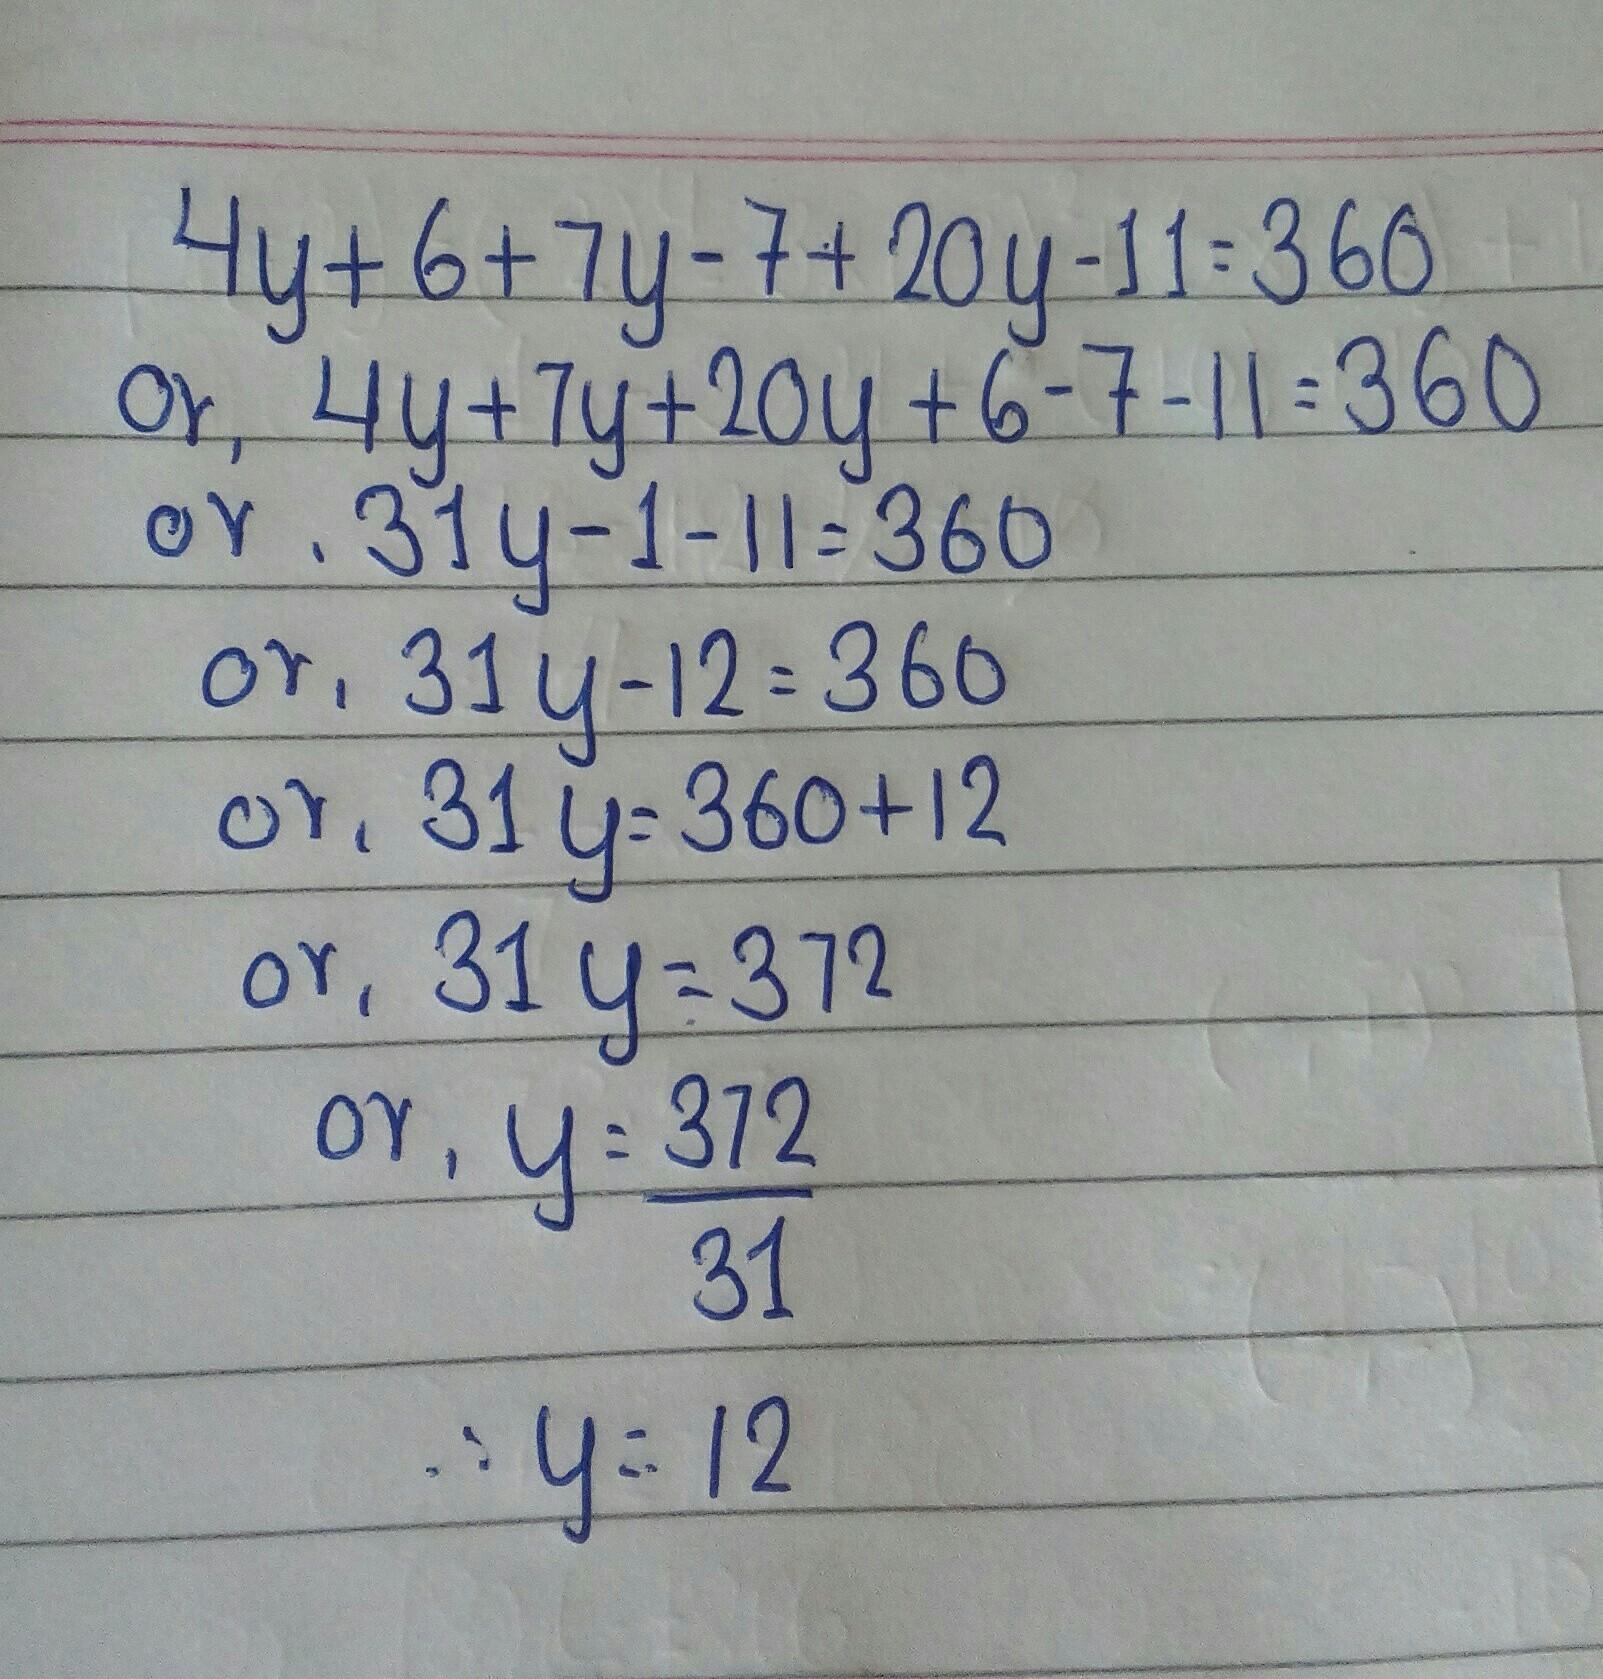 4y+6+7y-7+20y-11=360
or, 4y+7y+20y+6-7-11=360
or, 31y-1-11=360
or, 31y-12=360
or, 31y=360+12
or, 31y=372
or, y=372
31
∴ y=12